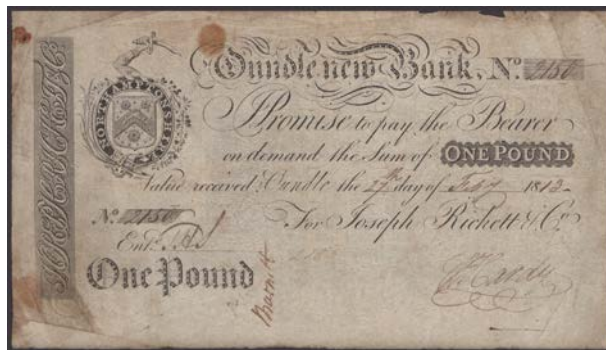 Oundle new Bank. No. 2150
NORTHAMPTONSHIRE
I Promise to pay the Bearer
on demand the Sum of ONE POUND
Value received Oundle the 27th day of 1813
No. 2150 For Joseph Rickett & Co.
Ent.
One Pound